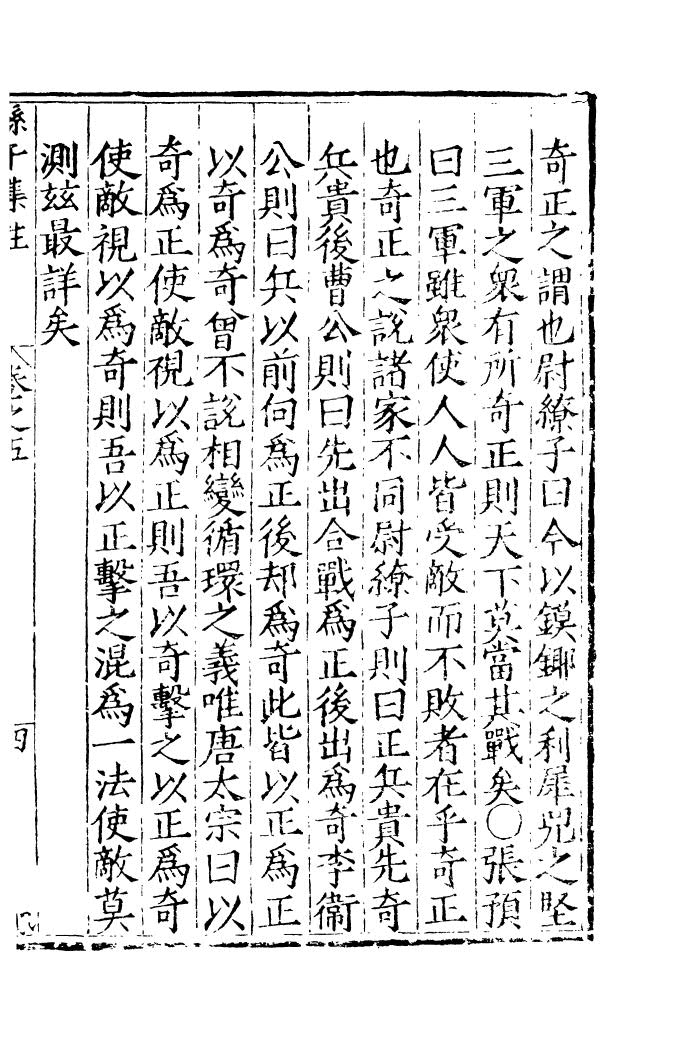 奇正之謂也尉繚子曰今以鏌鎁之利犀兕之堅
三軍之衆有所奇正則天下莫當其戰矣〇張預
曰三軍雖衆使人人皆受敵而不敗者在乎奇正
也奇正之說諸家不同尉繚子則曰正兵貴先奇
兵貴後曹公則曰先出合戰爲正後出爲奇李衞
公則曰兵以前向爲正後却爲奇此皆以正爲正
以奇爲奇曾不說相變循環之義唯唐太宗曰以
奇爲正使敵視以爲正則吾以奇擊之以正爲奇
使敵視以爲奇則吾以正擊之混爲一法使敵莫
測兹最詳矣
孫子集註 卷之五 四